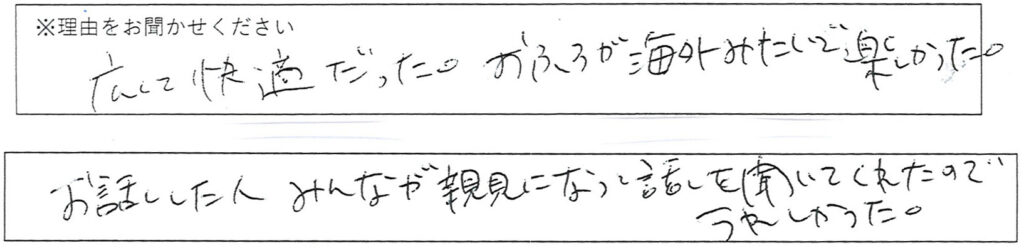 ※理由をお聞かせください
広くて快適だった。おふろが海外みたいで楽しかった。
お話しした人みんなが親見になって話しを聞いてくれたので
うれしかった。